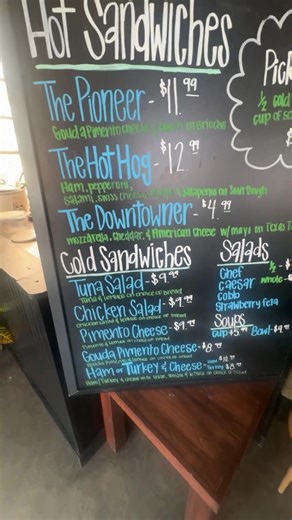 Hot Sandwiches
The Pioneer - $11.99
Gouda Pimento Cheese & on Brioche
The Hot Hog - $12.99
Ham, pepperoni,
salami, swiss cheese, & jalapenos on Sour Dough
The Downtowner - $4.99
mozzarella, cheddar, & American cheese w/ mayo on Texas T
Pick
1/2 cold
cup of so
$
Cold Sandwiches
Tuna Salad - $9.99
Tuna & lettuce on choice of bread
Chicken Salad - $9.99
chicken salad & lettuce on choice of bread
Pimento Cheese - $9.99
Pimento & lettuce on choice of bread
Gouda Pimento Cheese - $8.99
lettuce on choice of bread
Ham or Turkey & Cheese - Ham $10.99
Turkey $8.99
Ham/Turkey & cheese with & lettuce on choice of bread
Salads
Chef
Caesar
Cobb
Strawberry Feta
1/2 - $
whole - $
Soups
Cup $5.99 Bowl - $9.99